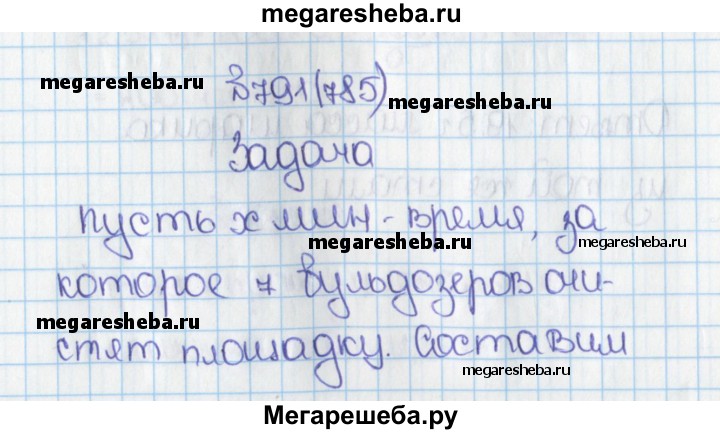 megaresheba.ru
megaresheba.ru
В 791(785)
megaresheba.ru
Задача
пусть х мин - время, за
megaresheba.ru
megaresheba.ru
которое 7 бульдозеров очи-
megaresheba.ru
стят площадку. Составим
megaresheba.ru
Мегарешеба.ру